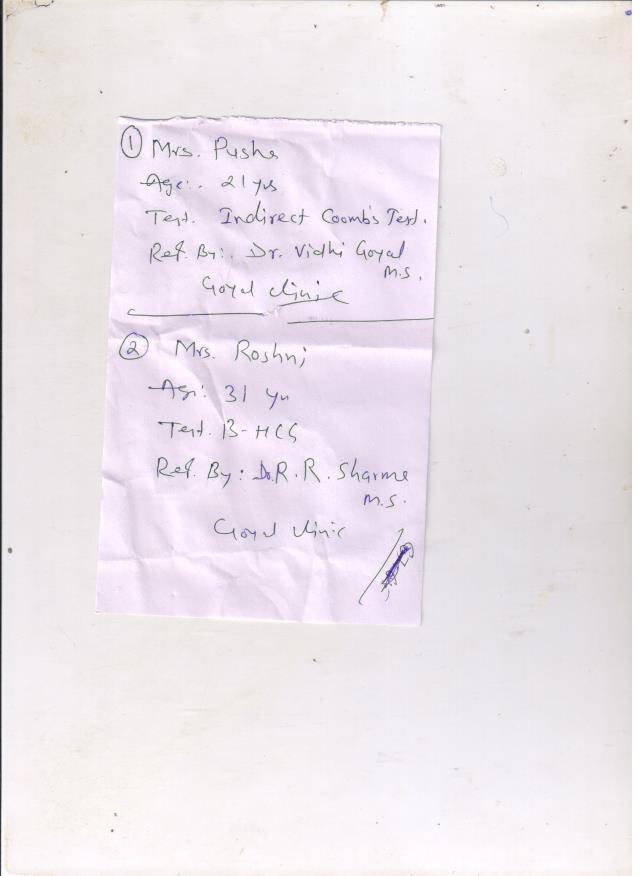 ① Mrs. Pusha
Age:. 21 yrs
Test. Indirect Coomb's Test.
Ref. By:. Dr. Vidhi Goyal
M.S.
Goyal clinic
② Mrs. Roshni
Age: 31 yr
Test. B-HCG
Ref. By: Dr. R. R. Sharma
M.S.
Goyal clinic